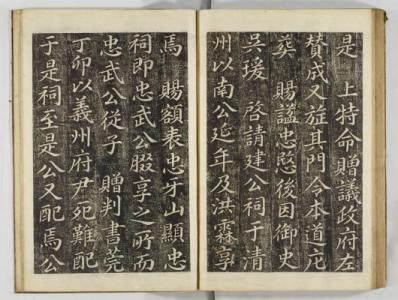 是 上特命贈議政府左
贊成又旌其門令本道庀
葬 賜謚忠愍後因御史
吳瑗 啓請建公祠于清
州以南公延年及洪霖享
焉 賜額表忠牙山顯忠
祠即忠武公腏享之所而
忠武公從子 贈判書莞
丁卯以義州府尹死難配
于是祠至是公又配焉公